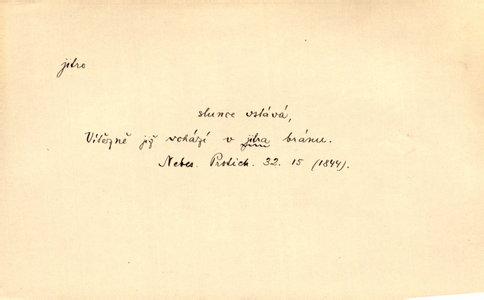 jitro
slunce vstává,
Vítězně již vchází v jitra bránu.
Nebes. Protich. 32. 15 (1844).